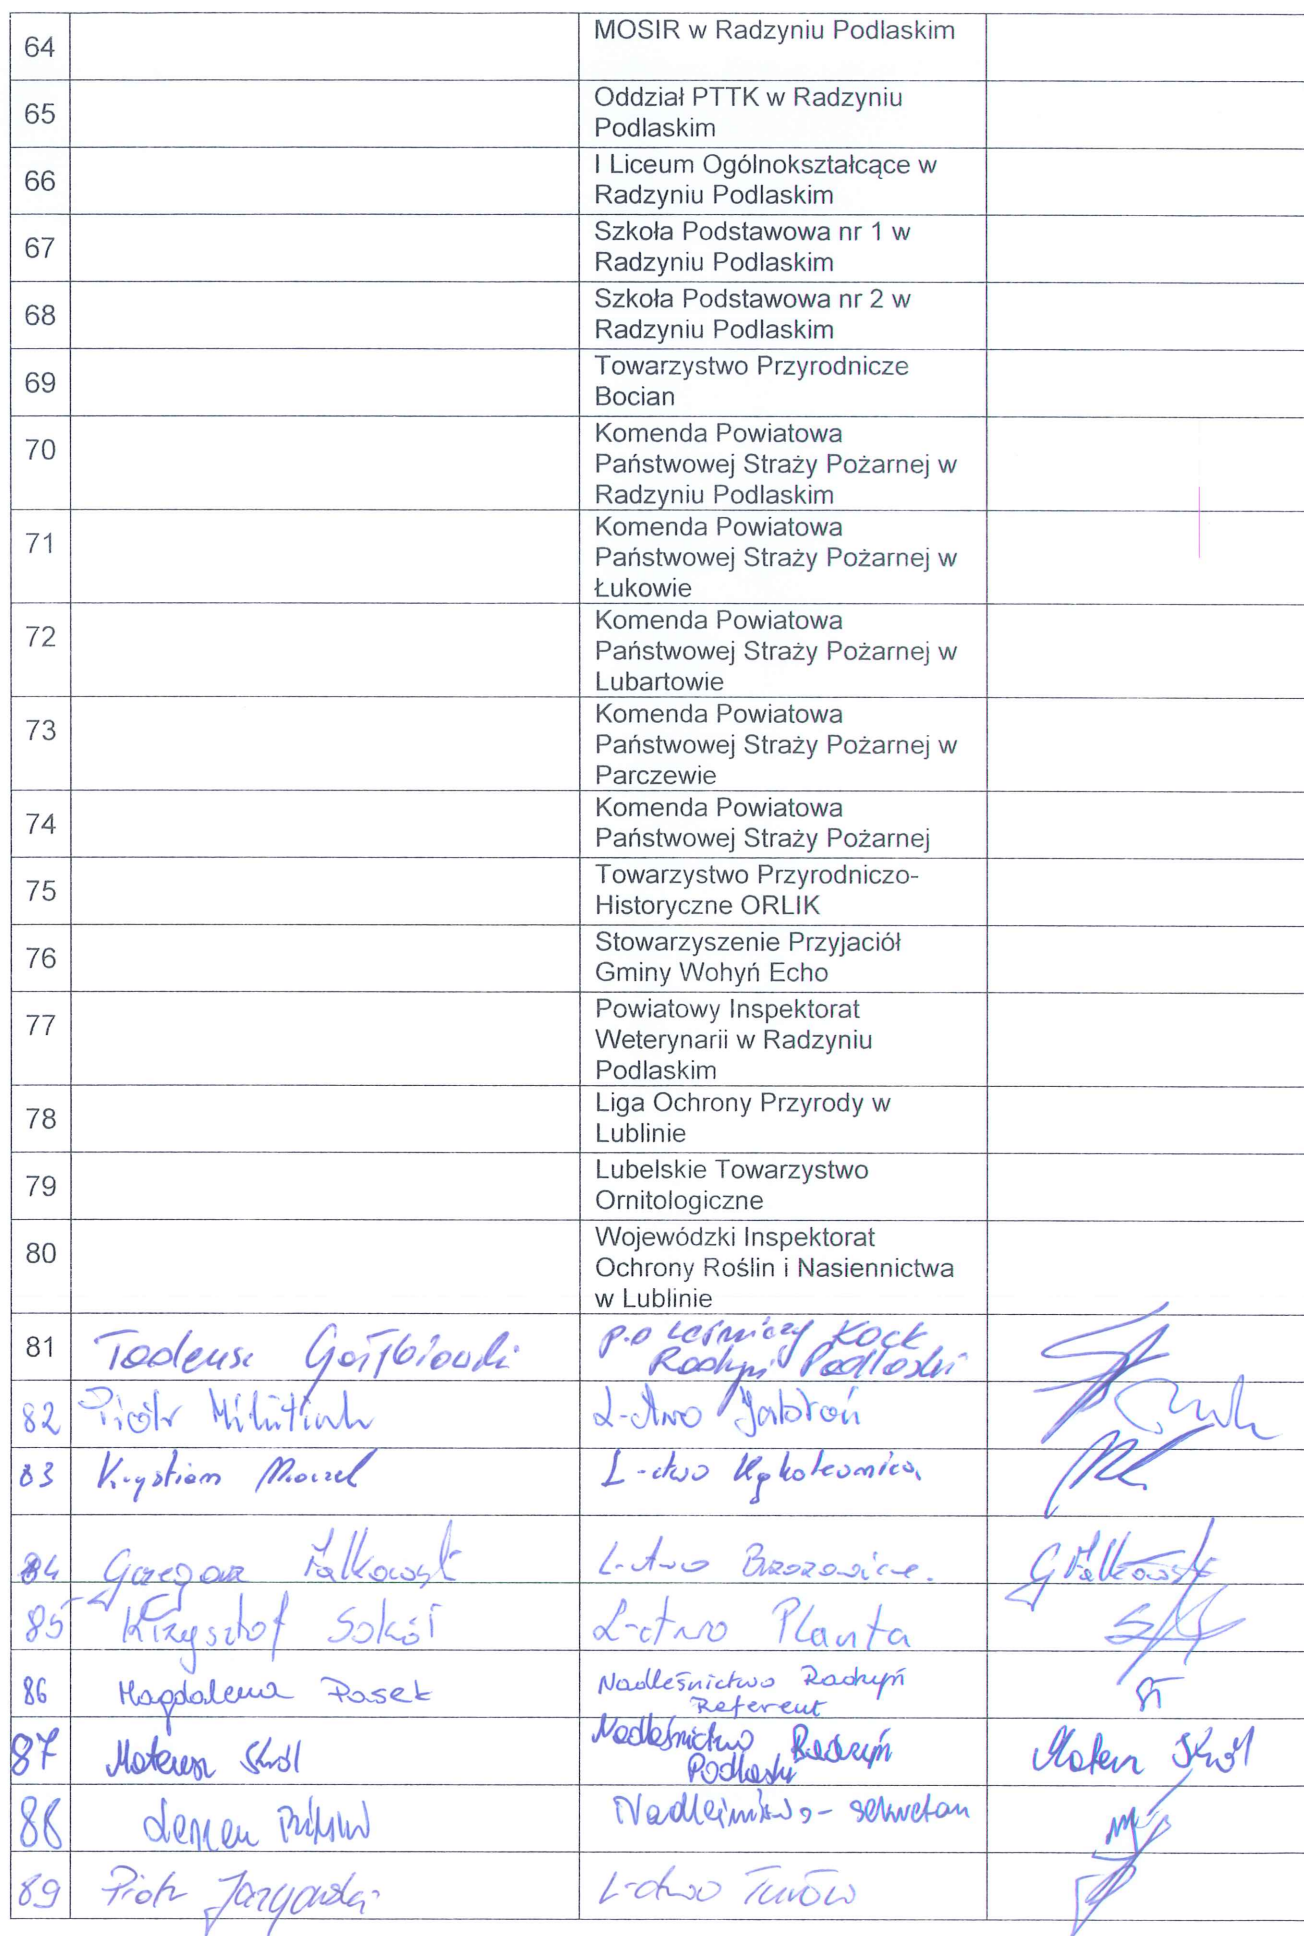 64 MOSIR w Radzyniu Podlaskim
65 Oddział PTTK w Radzyniu
Podlaskim
66 I Liceum Ogólnokształcące w
Radzyniu Podlaskim
67 Szkoła Podstawowa nr 1 w
Radzyniu Podlaskim
68 Szkoła Podstawowa nr 2 w
Radzyniu Podlaskim
69 Towarzystwo Przyrodnicze
Bocian
70 Komenda Powiatowa
Państwowej Straży Pożarnej w
Radzyniu Podlaskim
71 Komenda Powiatowa
Państwowej Straży Pożarnej w
Łukowie
72 Komenda Powiatowa
Państwowej Straży Pożarnej w
Lubartowie
73 Komenda Powiatowa
Państwowej Straży Pożarnej w
Parczewie
74 Komenda Powiatowa
Państwowej Straży Pożarnej
75 Towarzystwo Przyrodniczo-
Historyczne ORLIK
76 Stowarzyszenie Przyjaciół
Gminy Wohyń Echo
77 Powiatowy Inspektorat
Weterynarii w Radzyniu
Podlaskim
78 Liga Ochrony Przyrody w
Lublinie
79 Lubelskie Towarzystwo
Ornitologiczne
80 Wojewódzki Inspektorat
Ochrony Roślin i Nasiennictwa
w Lublinie
81 Tadeusz p.o Leśniczy Kock
Radzyń Podlaski
82 Piotr L-ctwo Jabłoń
83 Krystian L-ctwo
84 Grzegorz Fałkowski L-ctwo G Fałkowski
85 Krzysztof Sokół L-ctwo Planta
86 Magdalena Pasek Nadleśnictwo Radzyń
Referent
87 Mateusz Król Nadleśnictwo Radzyń
Podlaski
88 Nadleśnictwo - sekretarz
89 Piotr L-ctwo Turów